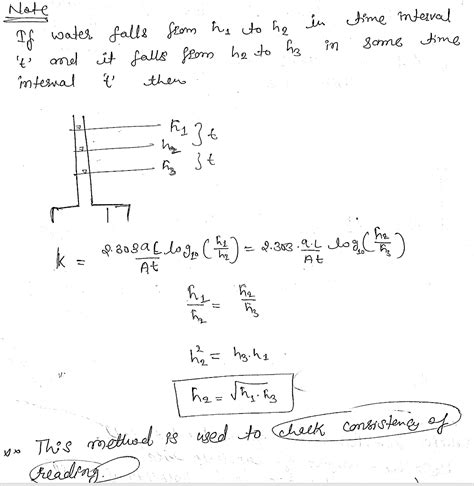 Note
If water falls from h₁ to h₂ in time interval
't' and it falls from h₂ to h₃ in same time
interval 't' then
h₁ } t
h₂
h₃ } t
k = 2.303aL/At log₁₀(h₁/h₂) = 2.303 · a·L/At log₁₀(h₂/h₃)
h₁/h₂ = h₂/h₃
h₂² = h₃·h₁
h₂ = √h₁·h₃
** This method is used to check consistency of
reading.